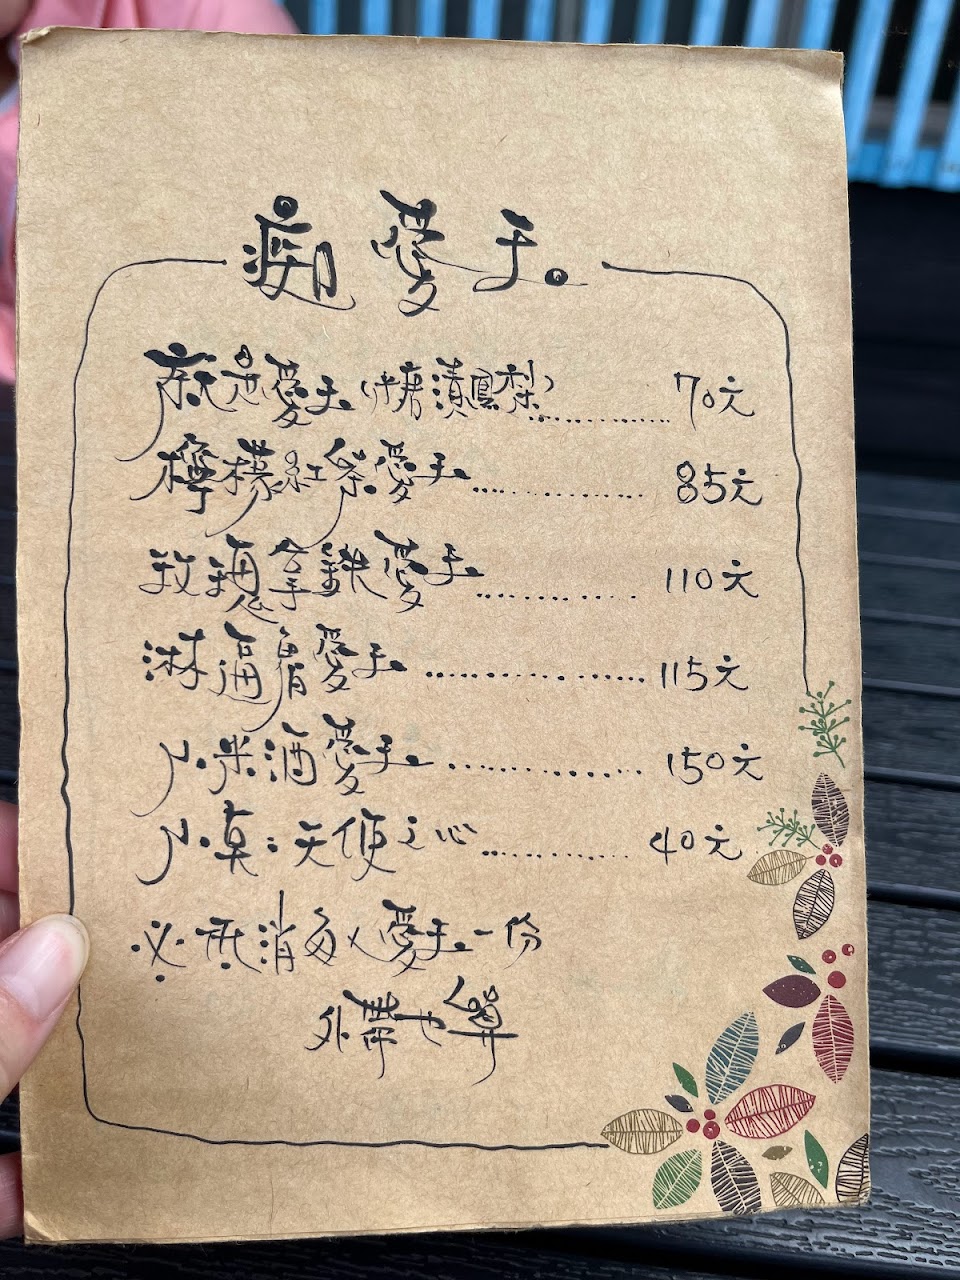 痴愛玉。
就是愛玉(糖漬鳳梨)..........70元
檸檬紅茶愛玉..........85元
玫瑰拿鐵愛玉..........110元
淋逼魯愛玉..........115元
小米酒愛玉..........150元
小:天使之心..........40元
必需消每人愛玉一份
外帶也算